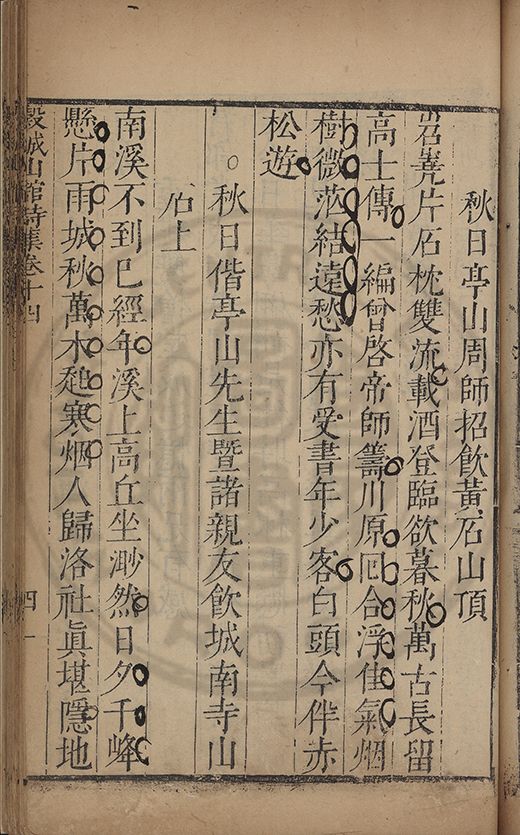 秋日亭山周師招飲黃石山頂
岧嶤片石枕雙流載酒登臨欲暮秋萬古長留
高士傳一編曾啓帝師籌川原回合浮佳氣烟
樹微茫結遠愁亦有受書年少客白頭今伴赤
松遊
秋日偕亭山先生暨諸親友飲城南寺山
石上
南溪不到已經年溪上高丘坐渺然日夕千峰
懸片雨城秋萬木起寒烟人歸洛社眞堪隱地
穀城山館詩集卷十四
四一